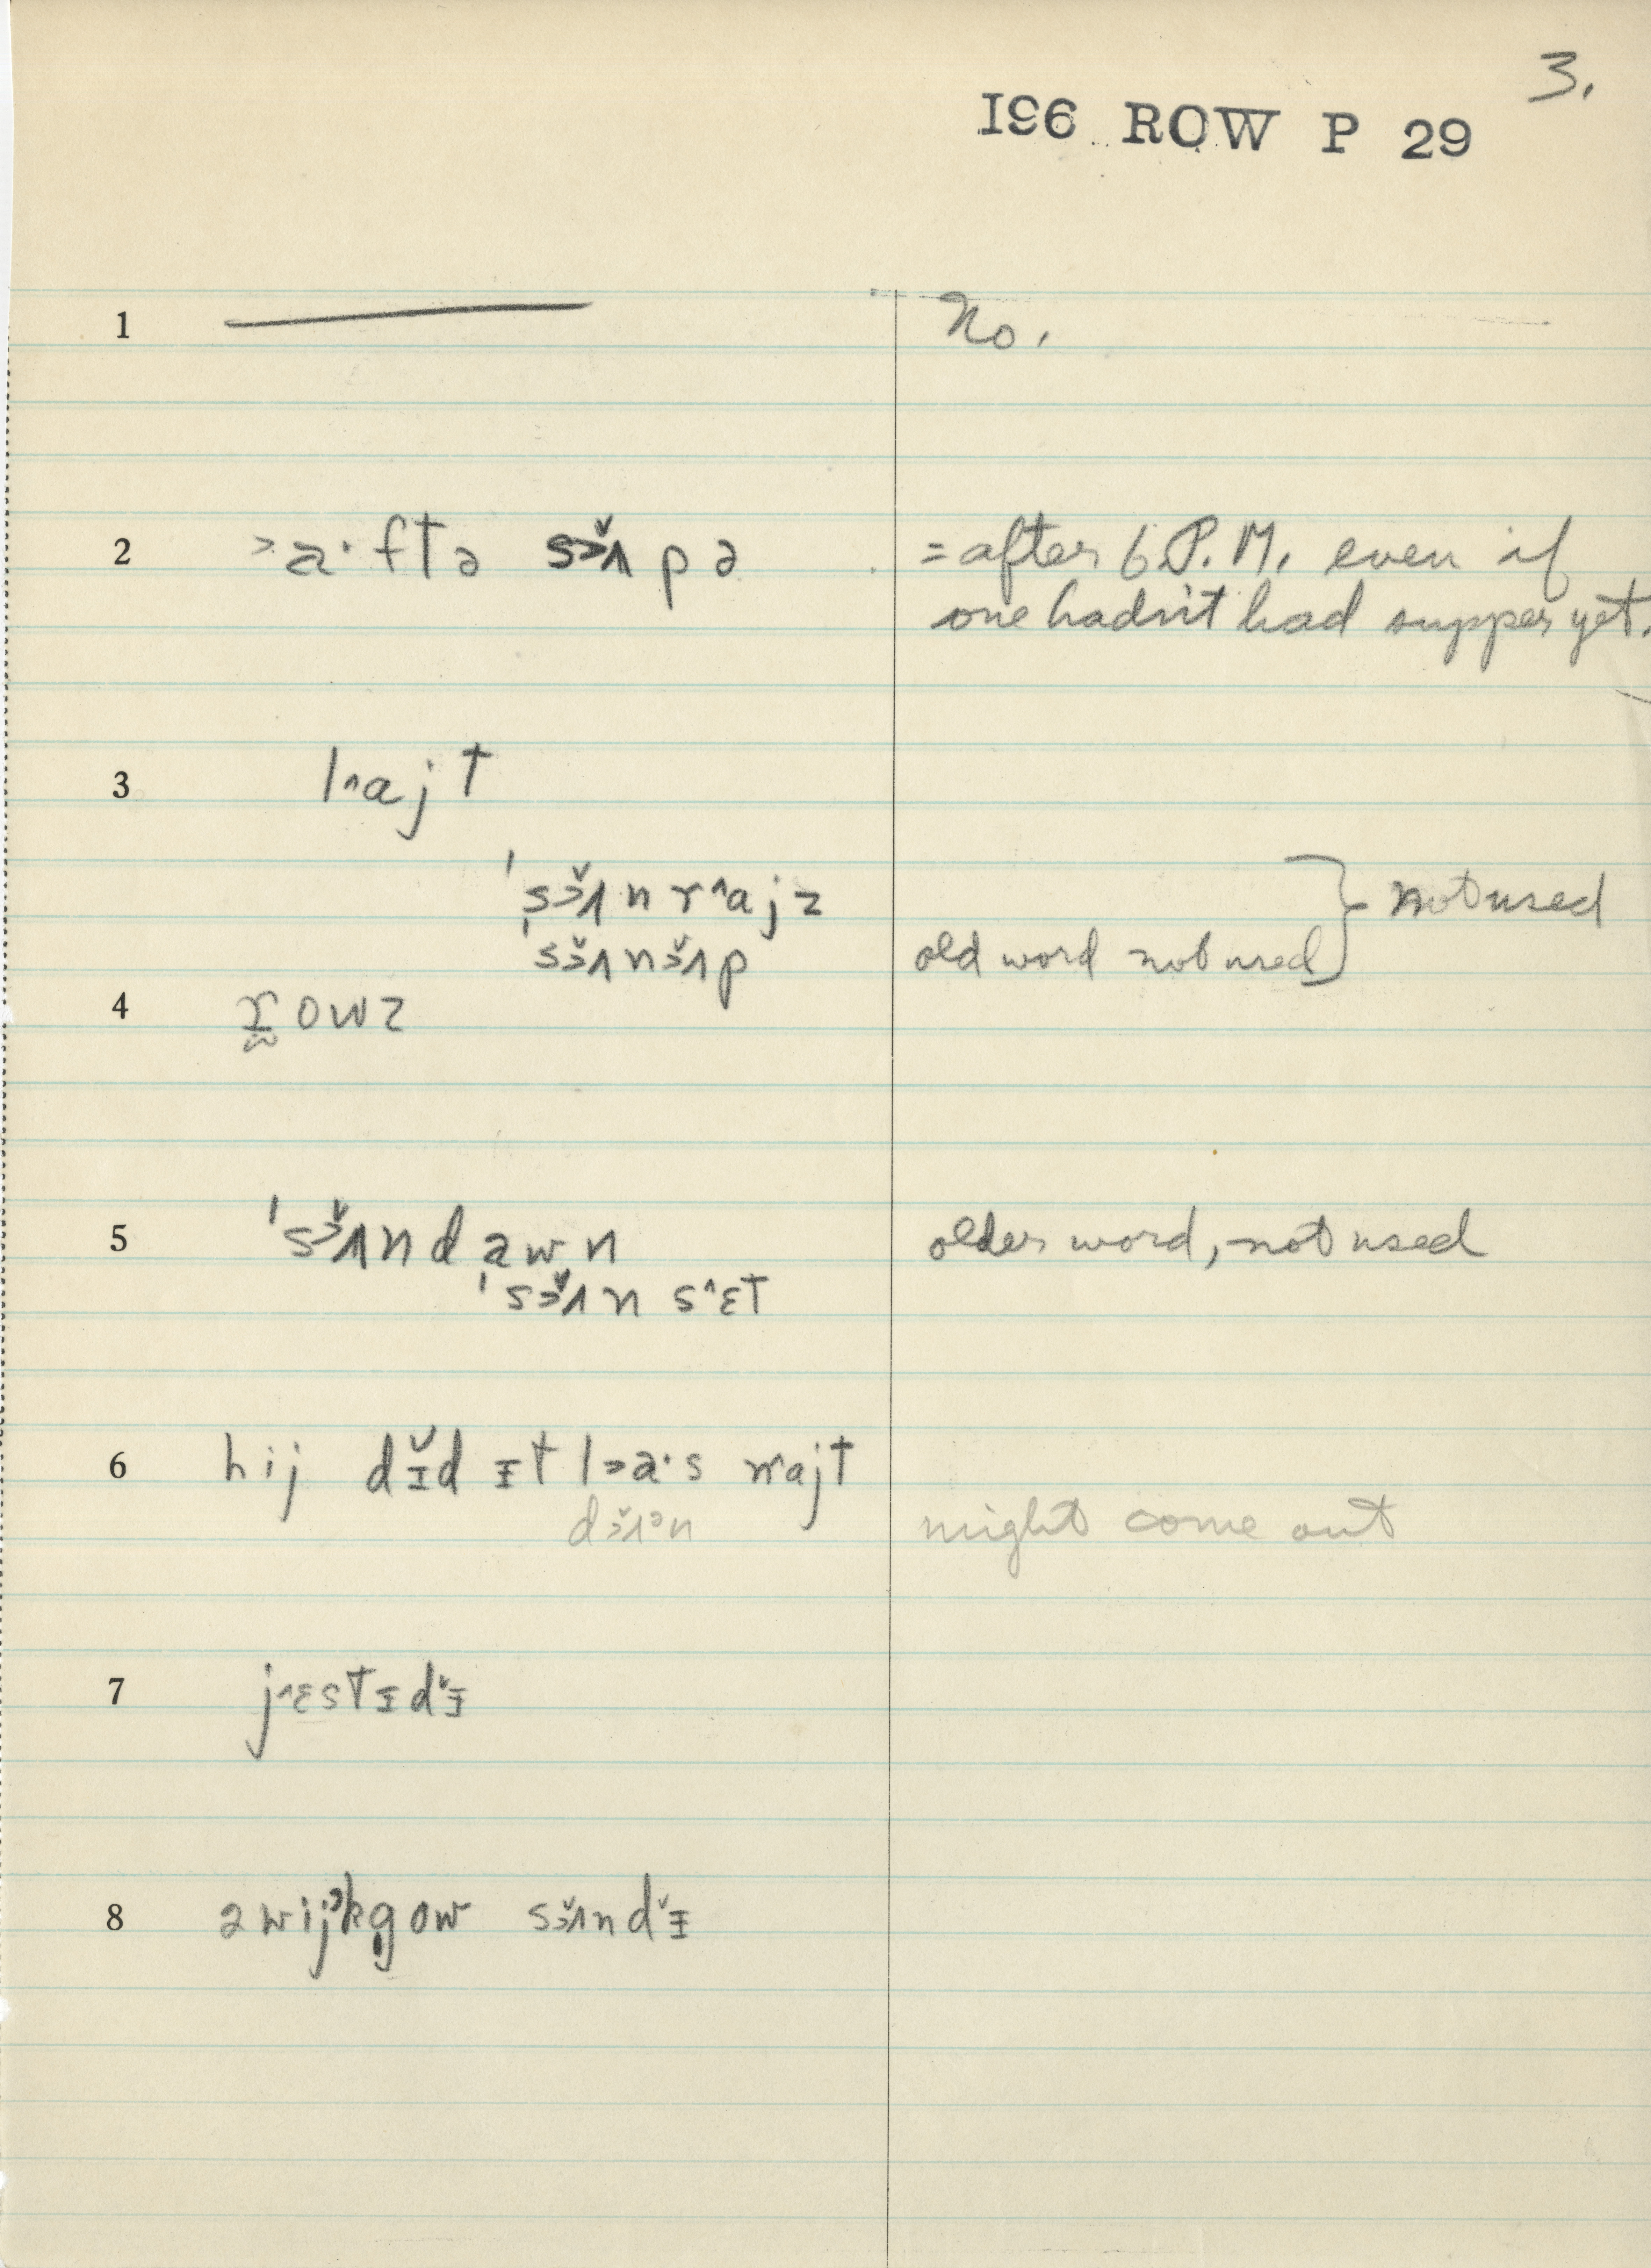 3.
196 ROW P 29
1 No.
2 ˃a·ftə s˃ʌ̆pə = after 6 P.M. even if
one hadn't had supper yet.
3 l˄ajt
's˃ʌ̆nr˄ajz } not used
's˃ʌ̆ns˃ʌ̆p old word not used
4 rowz
5 's˃ʌ̆ndawn older word, not used
's˃ʌ̆ns˄ɛt
6 hij dɪ̆d ɪt l˃a·s n˄ajt
d˃ʌ̆ᵊn might come out
7 j˄ɛstɪdɪ̆
8 ə wijk gow s˃ʌ̆ndɪ̆